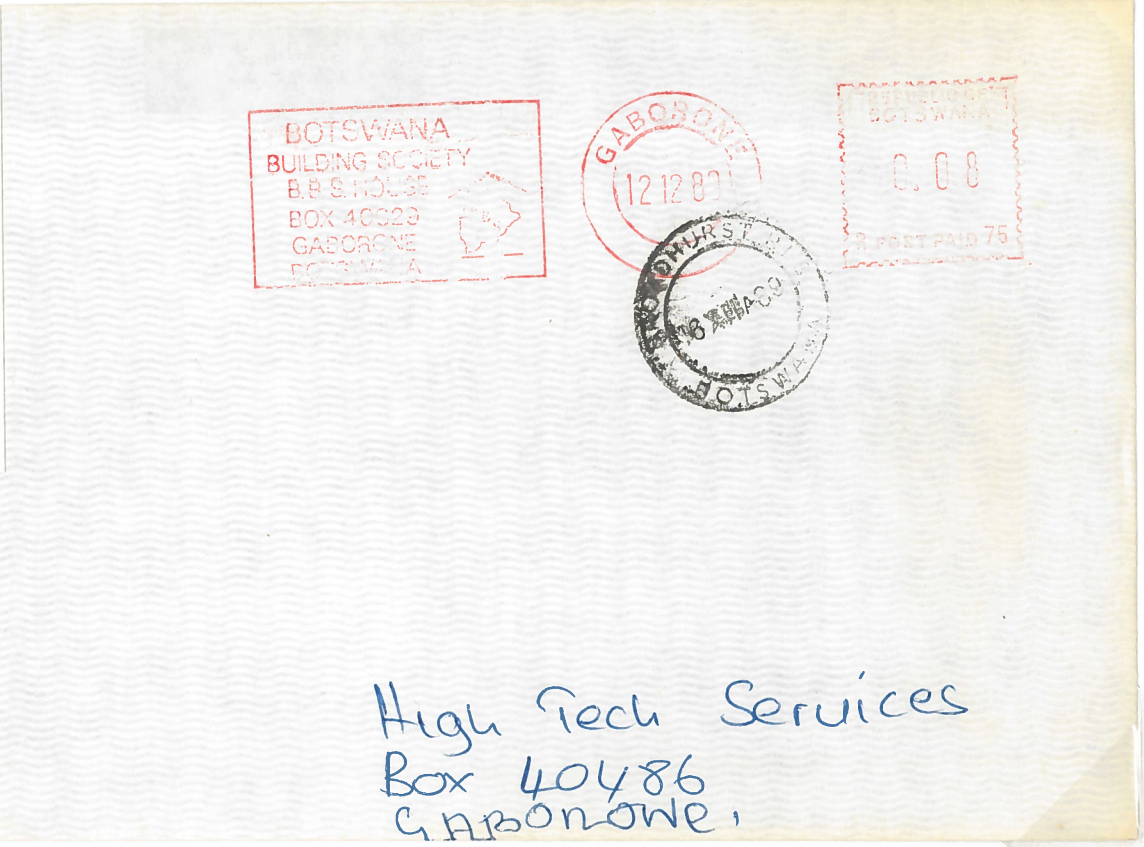 BOTSWANA
BUILDING SOCIETY
B.B.S. HOUSE
BOX 40029
GABORONE
BOTSWANA
GABORONE
12 12 89
BOTSWANA
0.08
POST PAID 75
BOTSWANA
High Tech Services
Box 40486
GABORONE.